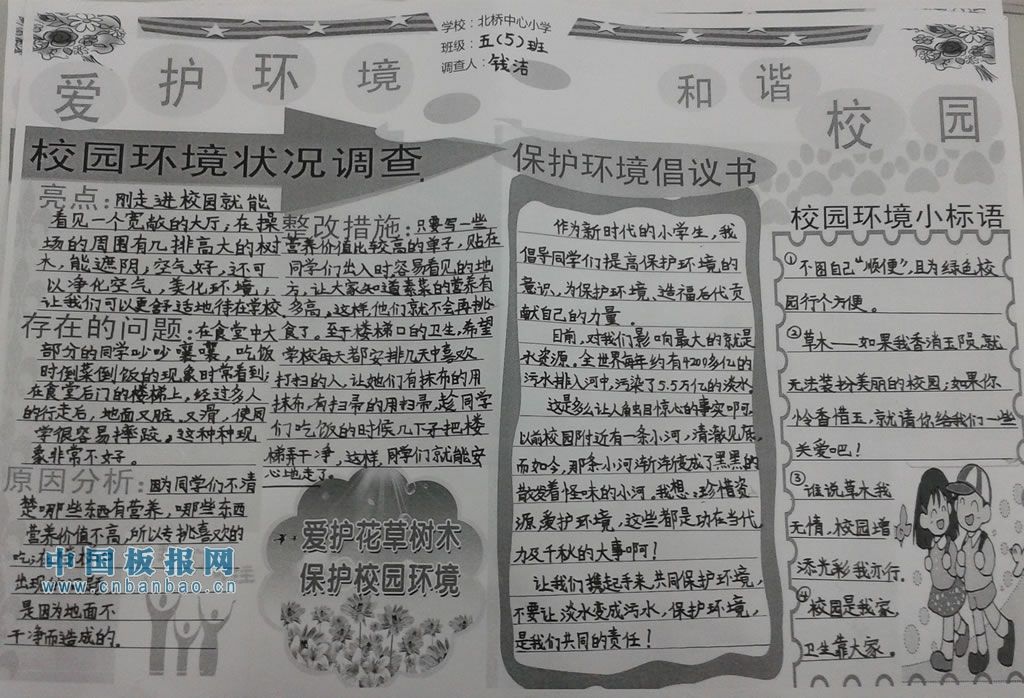 学校：北桥中心小学
班级：五(5)班
调查人：钱洁
爱护环境
和谐校园
校园环境状况调查
亮点：刚走进校园就能
看见一个宽敞的大厅，在操
场的周围有几排高大的树
木，能遮阴，空气好，还可
以净化空气，美化环境，
让我们可以更舒适地待在学校
存在的问题：在食堂中大
部分的同学吵吵嚷嚷，吃饭
时倒菜倒饭的现象时常看到；
在食堂后门的楼梯上，经过多人
的行走后，地面又脏、又滑，使同
学很容易摔跤。这种种现
象非常不好。
原因分析：因为同学们不清
楚哪些东西有营养，哪些东西
营养价值不高，所以专挑喜欢的
吃；
出现
是因为地面不
干净而造成的。
整改措施：只要写一些
营养价值比较高的单子，贴在
同学们出入时容易看见的地
方，让大家知道素菜的营养有
多高，这样他们就不会再挑
食了。至于楼梯口的卫生，希望
学校每天都安排几天中喜欢
打扫的人，让她们有抹布的用
抹布，有扫帚的用扫帚，趁同学
们吃饭的时候几下子把楼
梯弄干净，这样，同学们就能安
心地走了。
爱护花草树木
保护校园环境
中国板报网
www.cnbanbao.cn
保护环境倡议书
作为新时代的小学生，我
倡导同学们提高保护环境的
意识，为保护环境、造福后代贡
献自己的力量。
目前，对我们影响最大的就是
水资源。全世界每年约有4200多亿的
污水排入河中，污染了5.5万亿的淡水。
这是多么让人触目惊心的事实啊可。
以前校园附近有一条小河，清澈见底，
而如今，那条小河渐渐变成了黑黑的
散发着怪味的小河。我想，珍惜资
源、爱护环境，这些都是功在当代、
力及千秋的大事啊！
让我们携起手来，共同保护环境，
不要让淡水变成污水，保护环境，
是我们共同的责任！
校园环境小标语
①不图自己“顺便”，且为绿色校
园行个方便。
②草木——如果我香消玉陨，就
无法装扮美丽的校园；如果你
怜香惜玉，就请你给我们一些
关爱吧！
③谁说草木我
无情，校园增
添光彩我亦行。
④校园是我家
卫生靠大家。